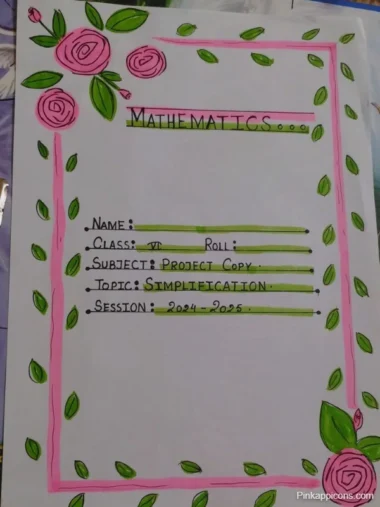 MATHEMATICS...
NAME:
CLASS: VI ROLL:
SUBJECT: PROJECT COPY.
TOPIC: SIMPLIFICATION.
SESSION: 2024-2025.
Pinkappicons.com